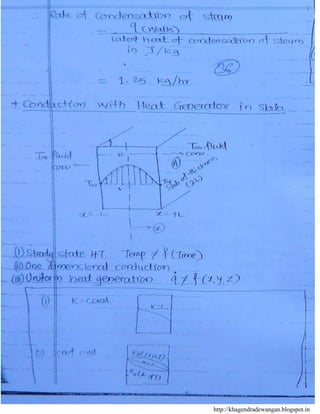 ∴ Rate of Condensation of steam
= q (watts)
Latent heat of condensation of steam
in J/kg
= 1.25 kg/hr.
+ Conduction with Heat Generator in Slab
T∞ fluid
conv
T∞ fluid
conv
Slab of thickness
(2L)
x = -L
x = +L
(i) Steady state H.T Temp ≠ f (Time)
(ii) One dimensional conduction.
(iii) Uniform heat generation q̇ ≠ f (x,y,z)
(i) K = const
http://khagendradewangan.blogspot.in